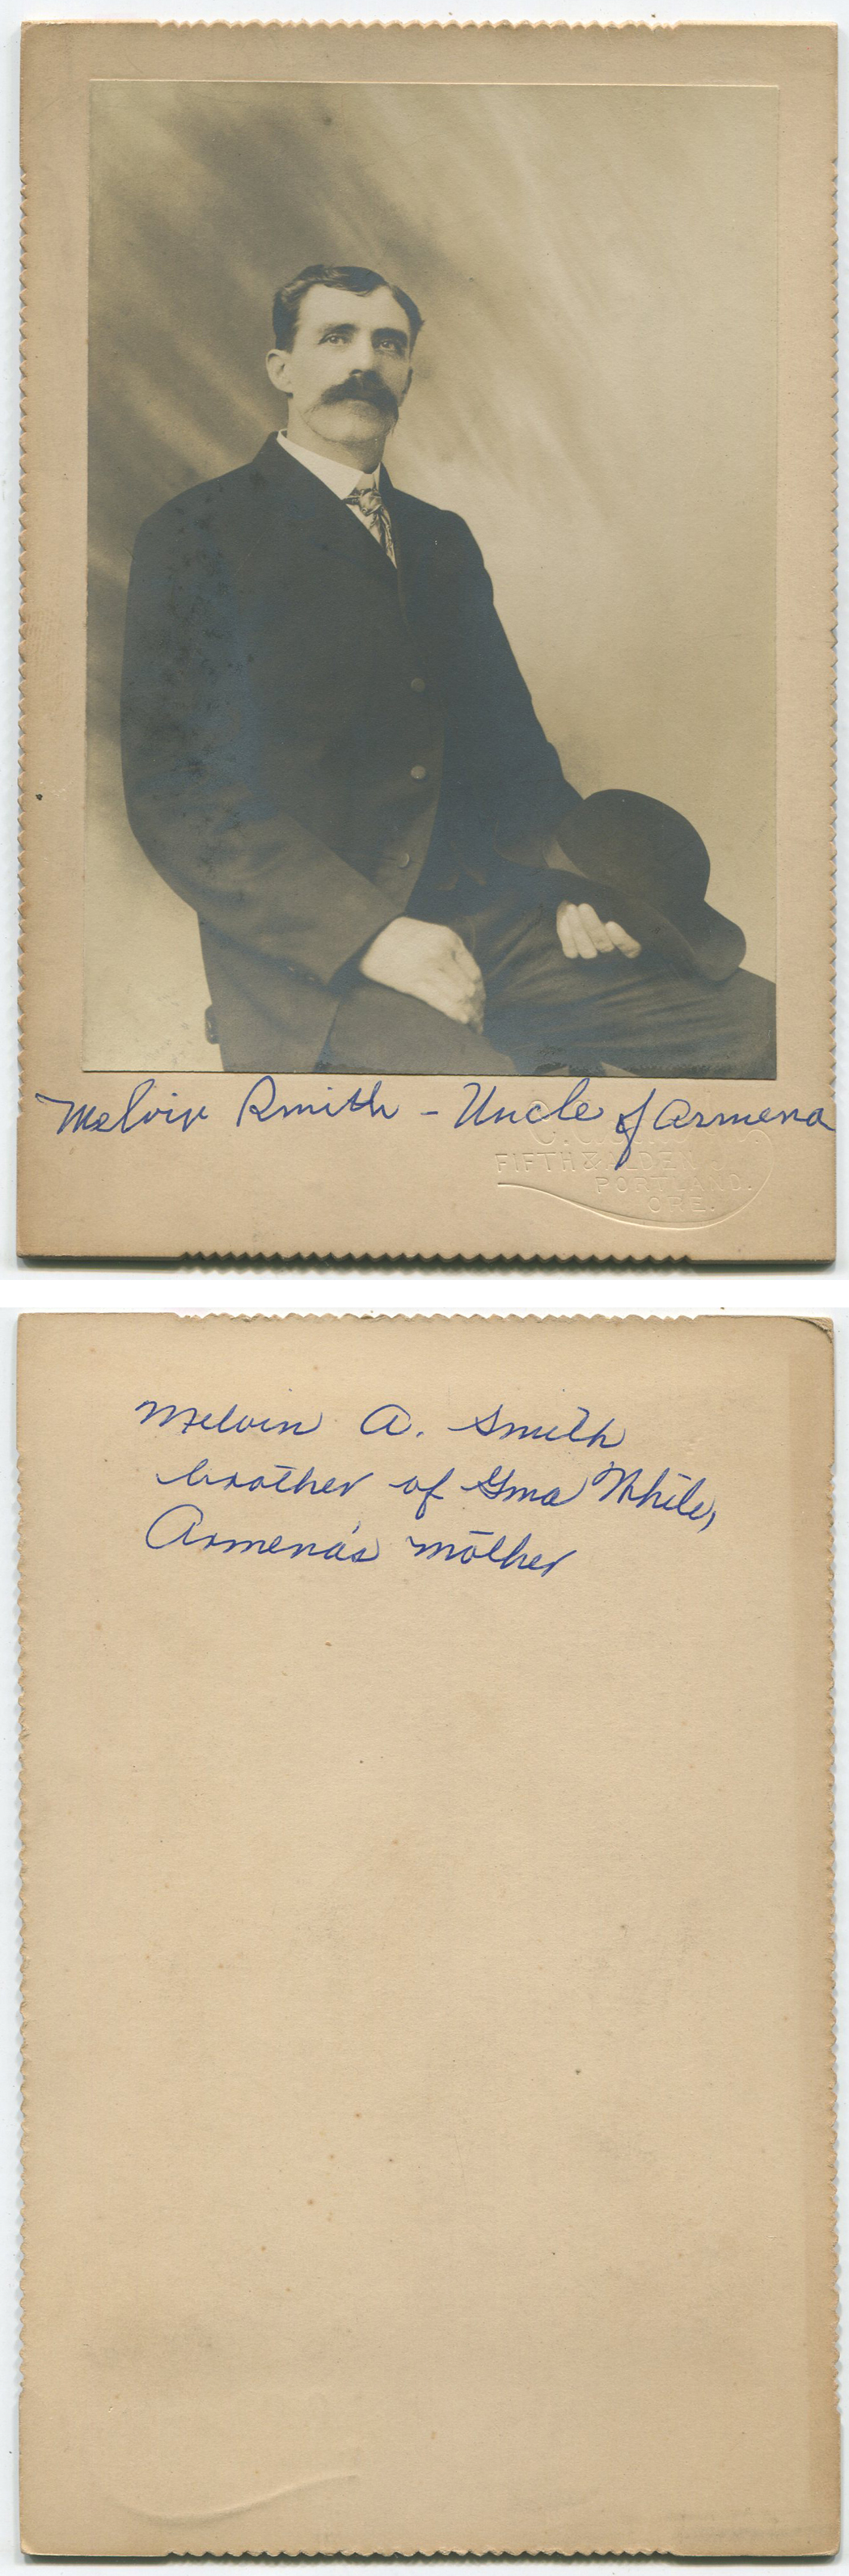 Melvin Smith - Uncle of Armena
FIFTH & ALDER
PORTLAND.
ORE.
Melvin A. Smith
brother of Gma White,
Armena's mother